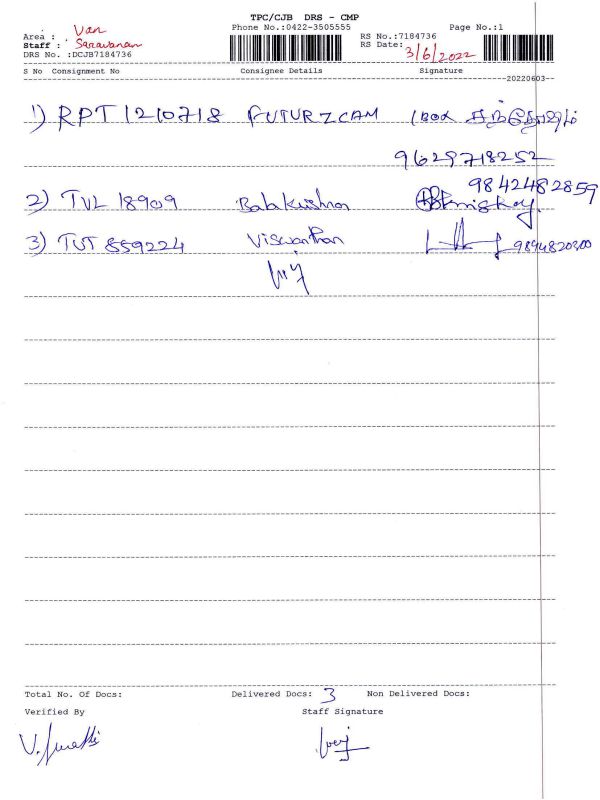 TPC/CJB DRS - CMP
Phone No.:0422-3505555 Page No.:1
Area : Van
RS No.:7184736
Staff : Saravanan
RS Date: 3/6/2022
DRS No. :DCJB7184736
S No Consignment No Consignee Details Signature
20220603
1) RPT1210718 FUTURZCAM 1BOX
9629718252
9842482859
2) TVL 18909 Balakrishna
3) TUT 859224 Viswanthan 9894820300
Total No. Of Docs: Delivered Docs: 3 Non Delivered Docs:
Verified By Staff Signature